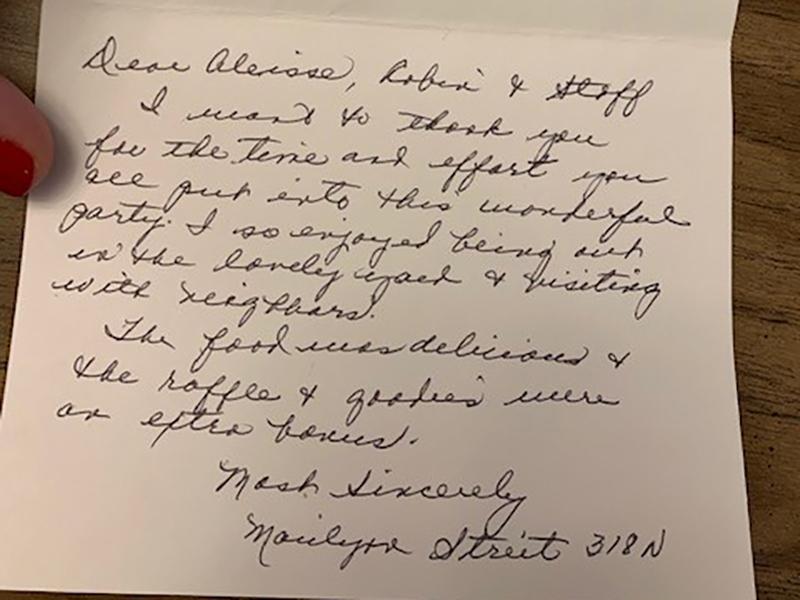 Dear Aleisse, Robin & Staff
I want to thank you
for the time and effort you
all put into this wonderful
party. I so enjoyed being out
in the lovely yard & visiting
with neighbors.
The food was delicious &
the raffle & goodies were
an extra bonus.
Most Sincerely
Marilynn Streit 318N